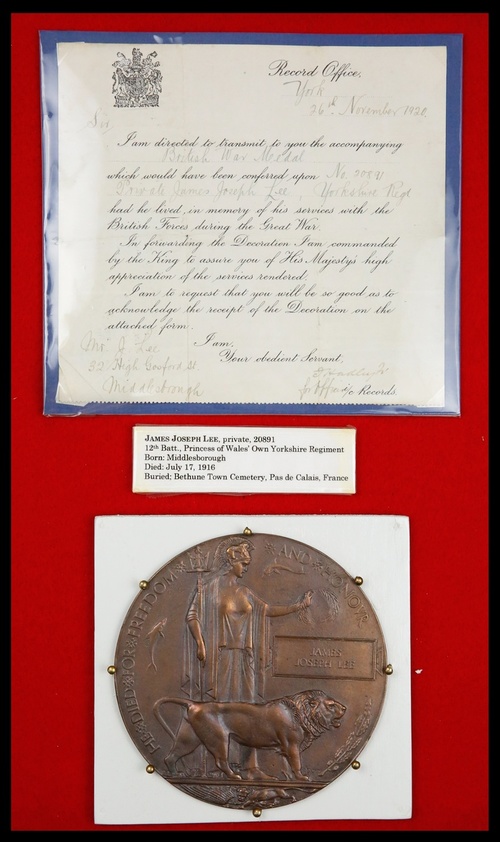 Record Office,
York
26th November 1920
Sir,
I am directed to transmit to you the accompanying
British War Medal
which would have been conferred upon No. 20891
Private James Joseph Lee, Yorkshire Regt
had he lived, in memory of his services with the
British Forces during the Great War.
In forwarding the Decoration I am commanded
by the King to assure you of His Majesty's high
appreciation of the services rendered.
I am to request that you will be so good as to
acknowledge the receipt of the Decoration on the
attached form.
I am,
Your obedient Servant,
Mr J. Lee
32 High Gosford St.
Middlesbrough
i/c Records.
JAMES JOSEPH LEE, private, 20891
12th Batt., Princess of Wales' Own Yorkshire Regiment
Born: Middlesborough
Died: July 17, 1916
Buried: Bethune Town Cemetery, Pas de Calais, France
HE DIED FOR FREEDOM AND HONOUR
JAMES
JOSEPH LEE